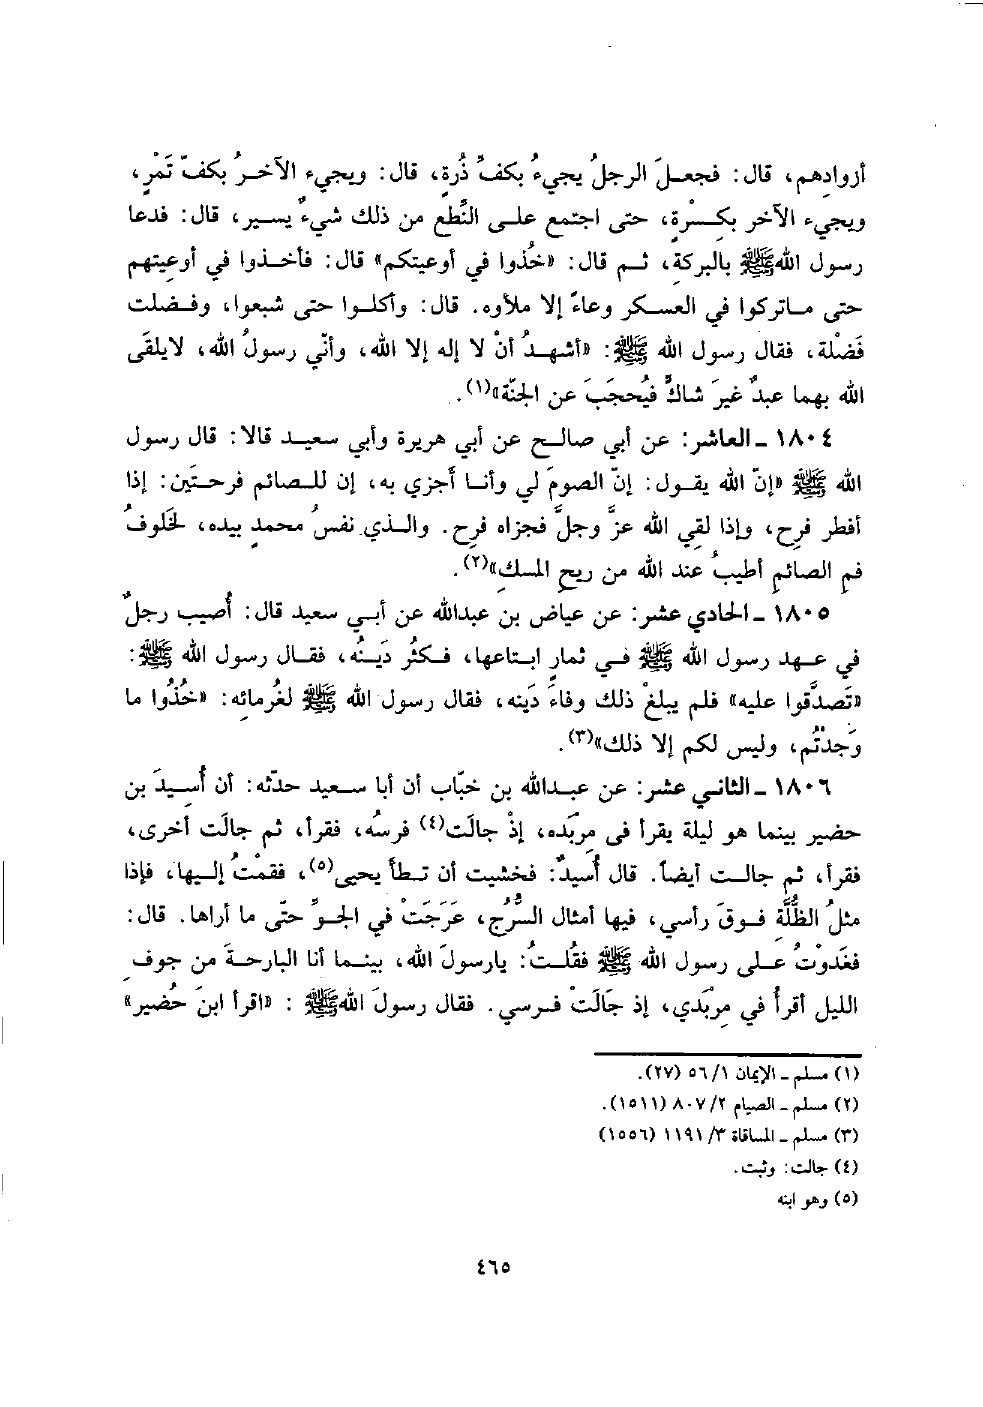 أزوادهم، قال: فجعلَ الرجلُ يجيءُ بكفِّ ذُرةٍ، قال: ويجيء الآخرُ بكفّ تَمْرٍ،
ويجيء الآخر بكِسْرةٍ، حتى اجتمع على النَّطع من ذلك شيءٌ يسير، قال: فدعا
رسول اللهﷺ بالبركة، ثم قال: «خُذوا في أوعيتكم» قال: فأخذوا في أوعيتهم
حتى ماتركوا في العسكر وعاءً إلا ملأوه. قال: وأكلوا حتى شبعوا، وفضلت
فَضْلة، فقال رسول الله ﷺ: «أشهدُ أنْ لا إله إلا الله، وأنّي رسولُ الله، لايلقَى
الله بهما عبدٌ غيرَ شاكٍّ فيُحجَبَ عن الجنّة»(١).
١٨٠٤ ـ العاشر: عن أبي صالح عن أبي هريرة وأبي سعيد قالا: قال رسول
الله ﷺ «إنّ الله يقول: إنّ الصومَ لي وأنا أجزي به، إن للصائم فرحتَين: إذا
أفطر فرِح، وإذا لقي الله عزَّ وجلَّ فجزاه فرِح. والذي نفسُ محمدٍ بيده، لخَلوفُ
فمِ الصائمِ أطيبُ عند الله من ريحِ المسكِ»(٢).
١٨٠٥ ـ الحادي عشر: عن عياض بن عبدالله عن أبي سعيد قال: أُصيب رجلٌ
في عهد رسول الله ﷺ في ثمارٍ ابتاعها، فكثُر دَينُه، فقال رسول الله ﷺ:
«تَصدَّقوا عليه» فلم يبلغْ ذلك وفاءَ دَينه، فقال رسول الله ﷺ لغُرمائِه: «خُذُوا ما
وَجدْتُم، وليس لكم إلا ذلك»(٣).
١٨٠٦ ـ الثاني عشر: عن عبدالله بن خبّاب أن أبا سعيد حدّثه: أن أُسيدَ بن
حضير بينما هو ليلة يقرأ فى مِربَده، إذْ جالَت(٤) فرسُه، فقرأ، ثم جالَت أخرى،
فقرأ، ثم جالت أيضاً. قال أُسَيدٌ: فخشيت أن تطأ يحيى(٥)، فقمْتُ إليها، فإذا
مثلُ الظُّلَّةِ فوقَ رأسي، فيها أمثال السُّرُج، عَرَجَتْ في الجوِّ حتّى ما أراها. قال:
فغَدوْتُ على رسول الله ﷺ فقُلتُ: يارسولَ الله، بينما أنا البارحةَ من جوفِ
الليل أقرأُ في مِرْبَدي، إذ جَالَتْ فرسي. فقال رسولَ اللهﷺ : «اقرأ ابنَ حُضير»
(١) مسلم ـ الإيمان ٥٦/١ (٢٧).
(٢) مسلم ـ الصيام ٨٠٧/٢ (١٥١١).
(٣) مسلم ـ المساقاة ١١٩١/٣ (١٥٥٦)
(٤) جالت: وثبت.
(٥) وهو ابنه
٤٦٥